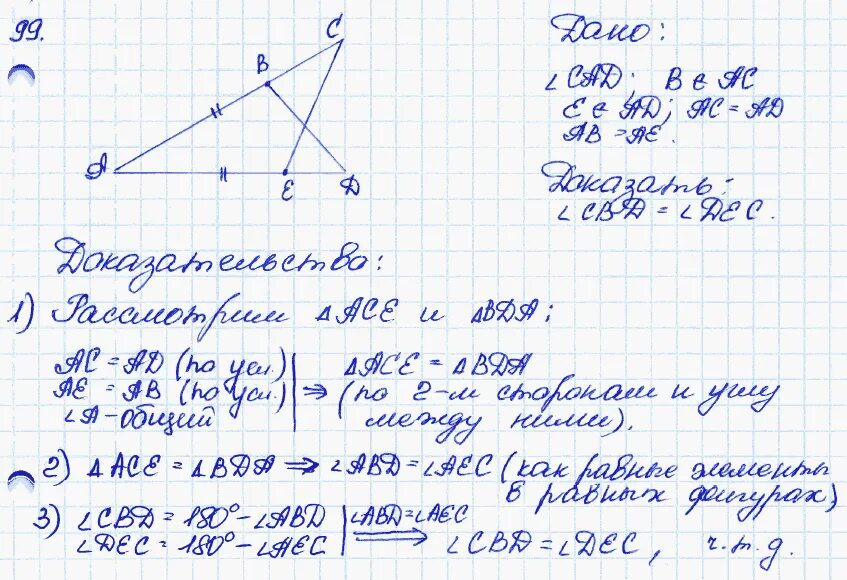 99.
C
B
A
E
D
Дано:
∠CAD; B ∈ AC
E ∈ AD; AC = AD
AB = AE.
Доказать:
∠CBD = ∠DEC.
Доказательство:
1) Рассмотрим ΔACE и ΔBDA:
AC = AD (по усл.)
AE = AB (по усл.)
∠A - общий
⇒
ΔACE = ΔBDA
(по 2-м сторонам и углу
между ними).
2) ΔACE = ΔBDA ⇒ ∠ABD = ∠AEC (как равные элементы
в равных фигурах)
3) ∠CBD = 180° - ∠ABD
∠DEC = 180° - ∠AEC
∠ABD = ∠AEC
⇒ ∠CBD = ∠DEC, ч.т.д.